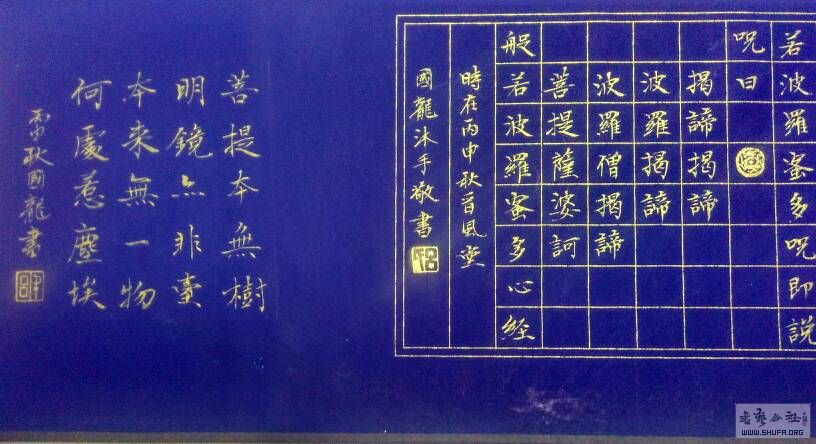 若波羅蜜多呪即説
呪曰
揭諦揭諦
波羅揭諦
波羅僧揭諦
菩提薩婆訶
般若波羅蜜多心経
時在丙申秋風堂
國龍沐手敬書
菩提本無樹
明鏡亦非臺
本来無一物
何處惹塵埃
丙申秋国龍書
書藝公社
WWW.SHUFA.ORG